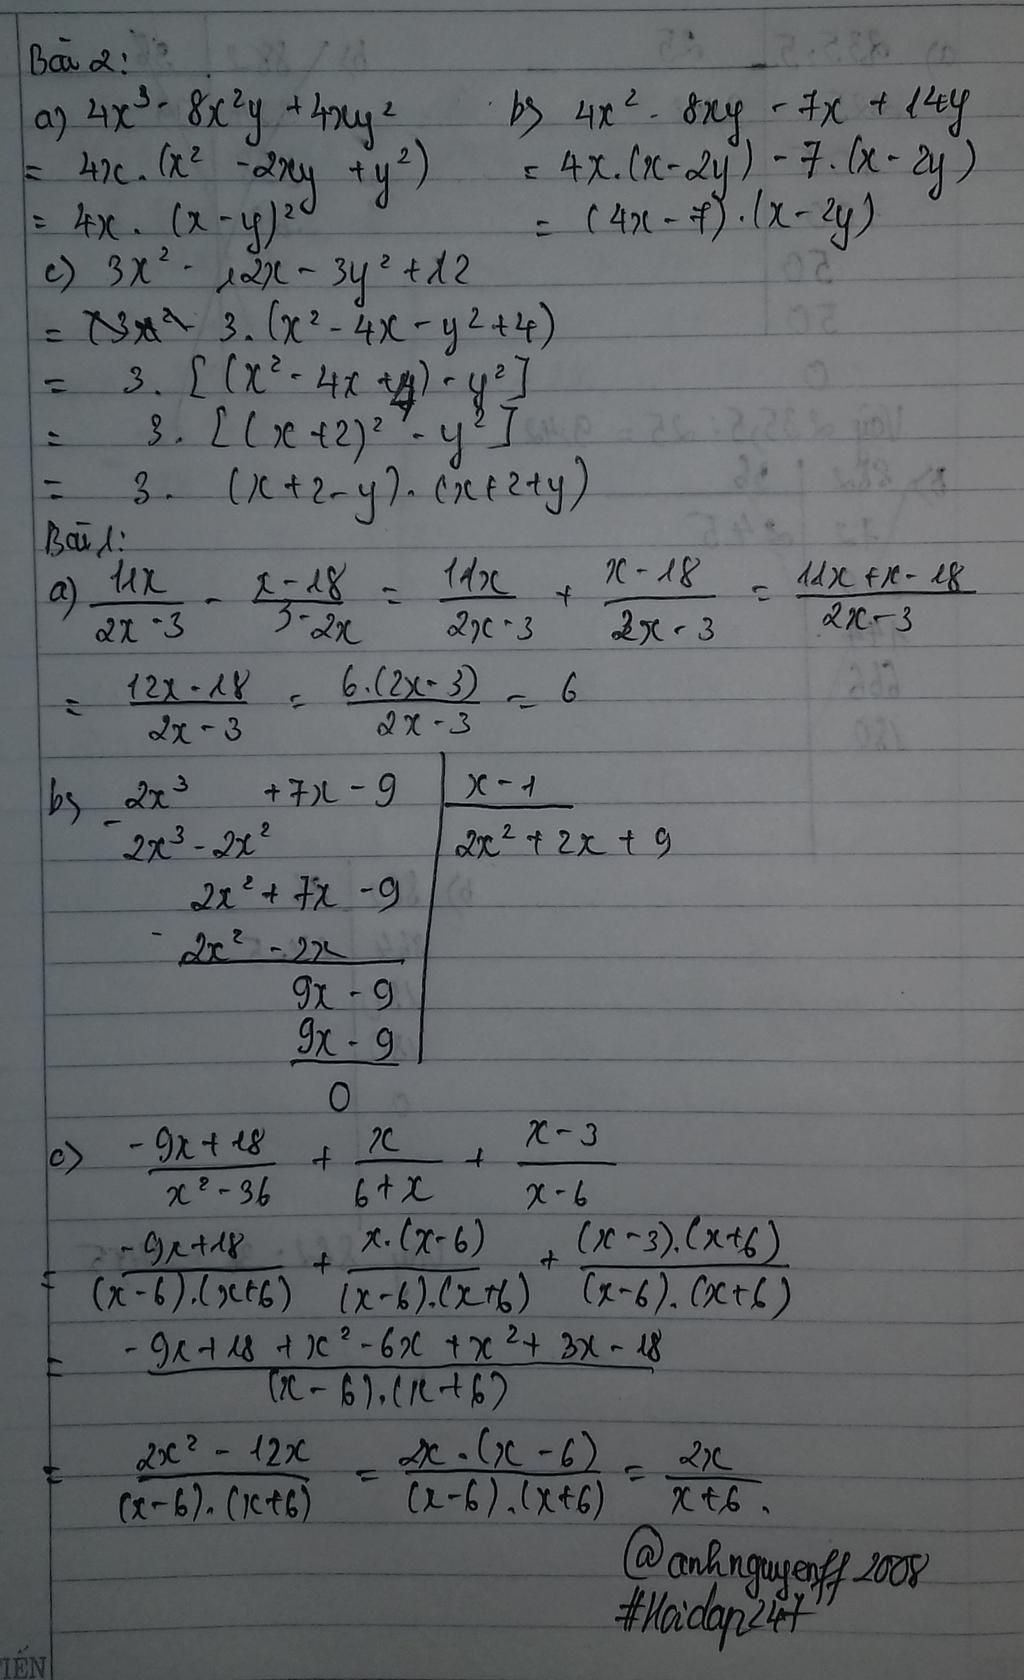 Bài 2:
a) 4x³ - 8x²y + 4xy² b) 4x² - 8xy - 7x + 14y
= 4x . (x² - 2xy + y²) = 4x.(x - 2y) - 7.(x - 2y)
= 4x . (x - y)² = (4x - 7).(x - 2y)
c) 3x² - 12x - 3y² + 12
= 3.(x² - 4x - y² + 4)
= 3. [(x² - 4x + 4) - y²]
= 3. [(x + 2)² - y²]
= 3. (x + 2 - y).(x + 2 + y)
Bài 1:
a) 11x/(2x - 3) - (x - 18)/(3 - 2x) = 11x/(2x - 3) + (x - 18)/(2x - 3) = (11x + x - 18)/(2x - 3)
= (12x - 18)/(2x - 3) = 6.(2x - 3)/(2x - 3) = 6
b) 2x³ + 7x - 9 | x - 1
- 2x³ - 2x² | 2x² + 2x + 9
2x² + 7x - 9
- 2x² - 2x
9x - 9
9x - 9
0
c) (-9x + 18)/(x² - 36) + x/(6 + x) + (x - 3)/(x - 6)
= (-9x + 18)/((x - 6).(x + 6)) + x.(x - 6)/((x - 6).(x + 6)) + (x - 3).(x + 6)/((x - 6).(x + 6))
= (-9x + 18 + x² - 6x + x² + 3x - 18)/((x - 6).(x + 6))
= (2x² - 12x)/((x - 6).(x + 6)) = 2x.(x - 6)/((x - 6).(x + 6)) = 2x/(x + 6).
@anhnguyenff2008
#Hoidap247